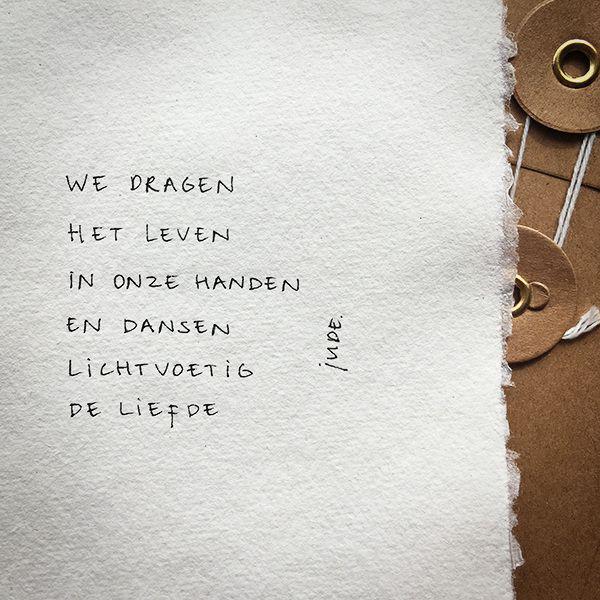 WE DRAGEN
HET LEVEN
IN ONZE HANDEN
EN DANSEN
LICHTVOETIG
DE LIEFDE
jude.